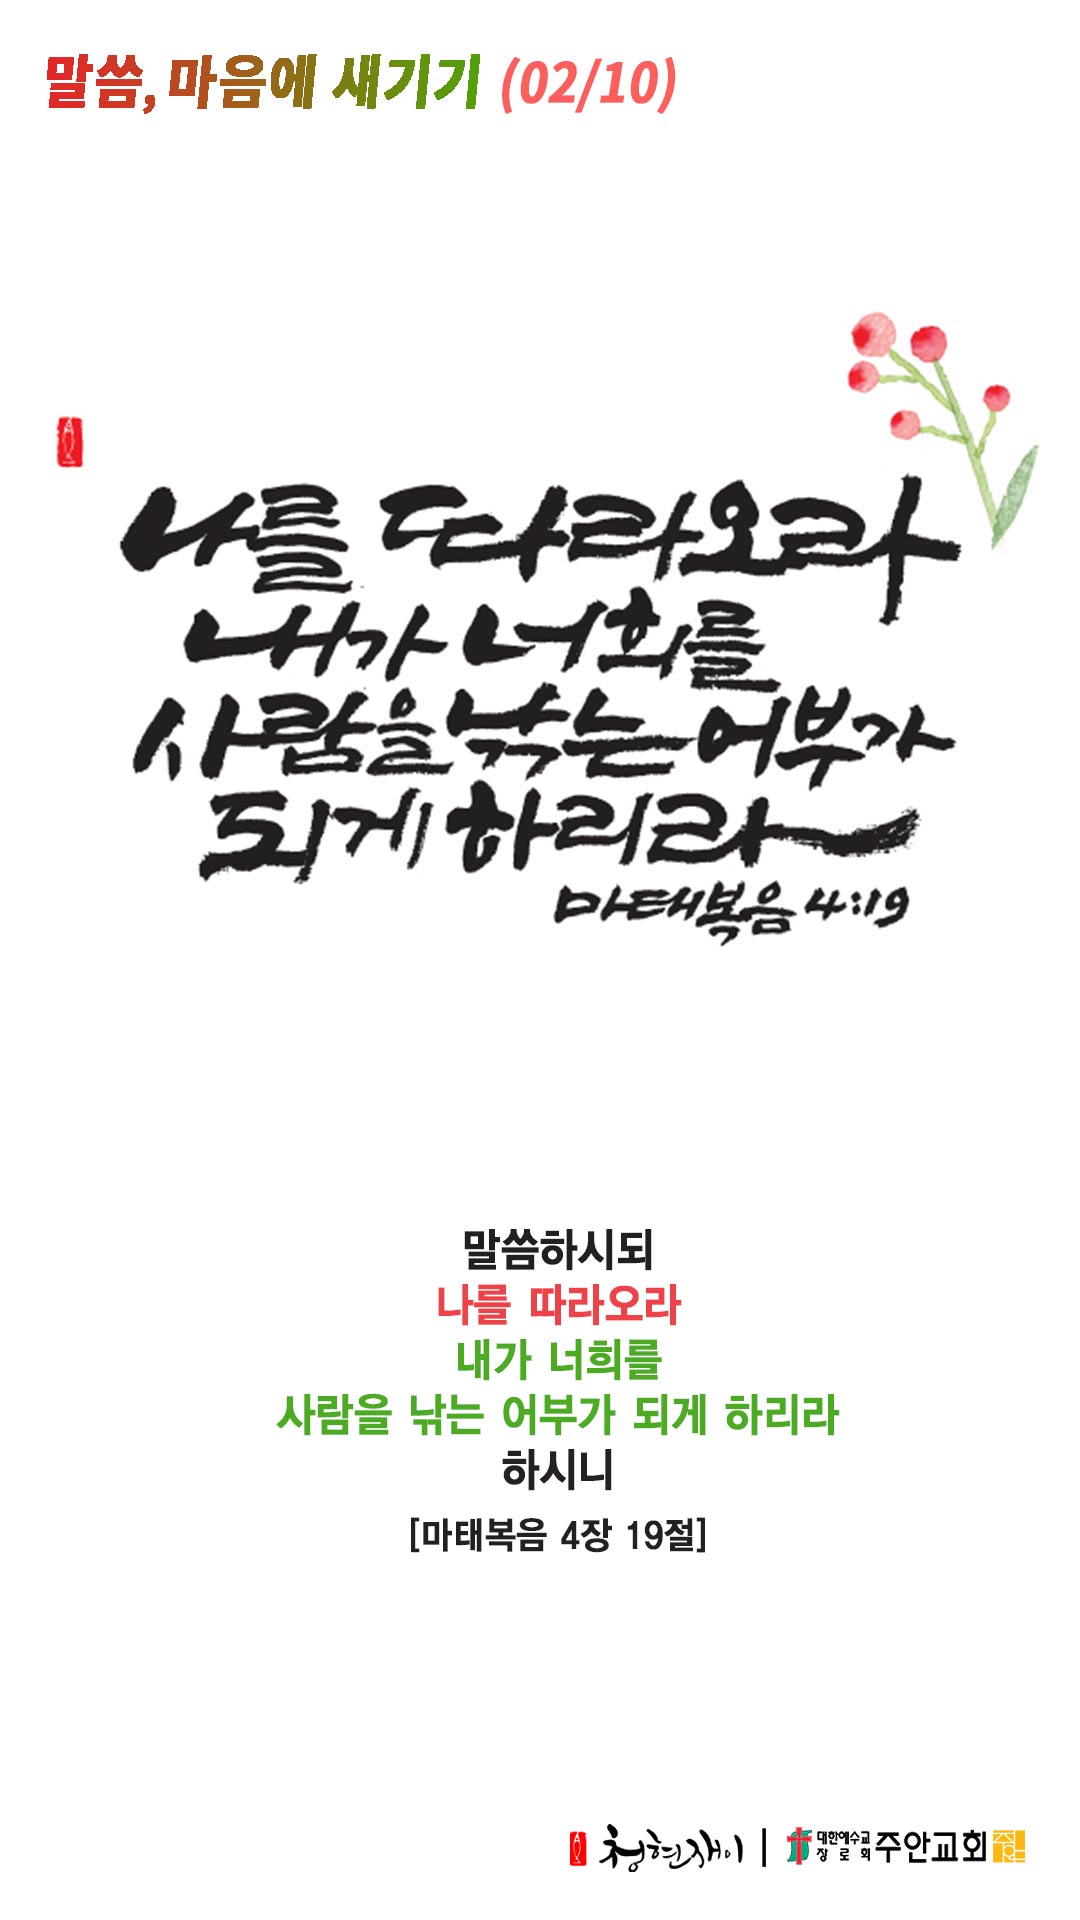 말씀, 마음에 새기기 (02/10)
나를 따라오라
내가 너희를
사람을 낚는 어부가
되게 하리라
마태복음 4:19
말씀하시되
나를 따라오라
내가 너희를
사람을 낚는 어부가 되게 하리라
하시니
[마태복음 4장 19절]
청현재이 | 대한예수교 장로회 주안교회